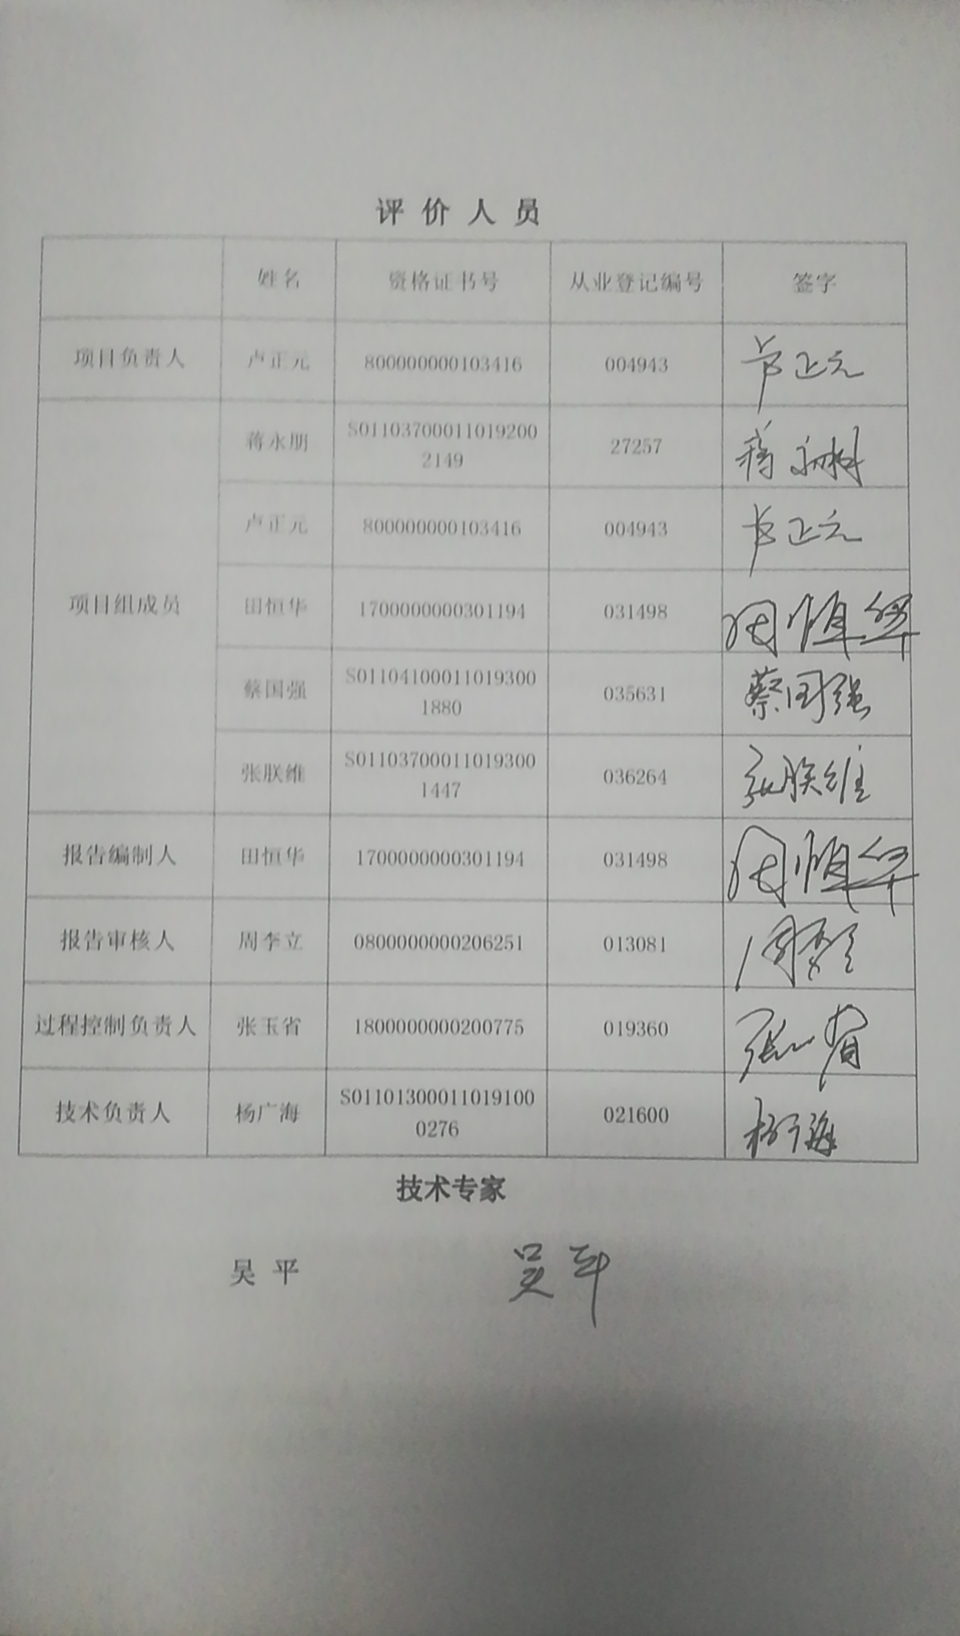 评价人员
姓名 资格证书号 从业登记编号 签字
项目负责人 卢正元 800000000103416 004943 卢正元
蒋永朋 S011037000110192002149 27257
卢正元 800000000103416 004943 卢正元
项目组成员 田恒华 1700000000301194 031498 田恒华
蔡国强 S011041000110193001880 035631 蔡国强
张朕维 S011037000110193001447 036264 张朕维
报告编制人 田恒华 1700000000301194 031498 田恒华
报告审核人 周李立 0800000000206251 013081 周李立
过程控制负责人 张玉省 1800000000200775 019360 张玉省
技术负责人 杨广海 S011013000110191000276 021600 杨广海
技术专家
吴平 吴平